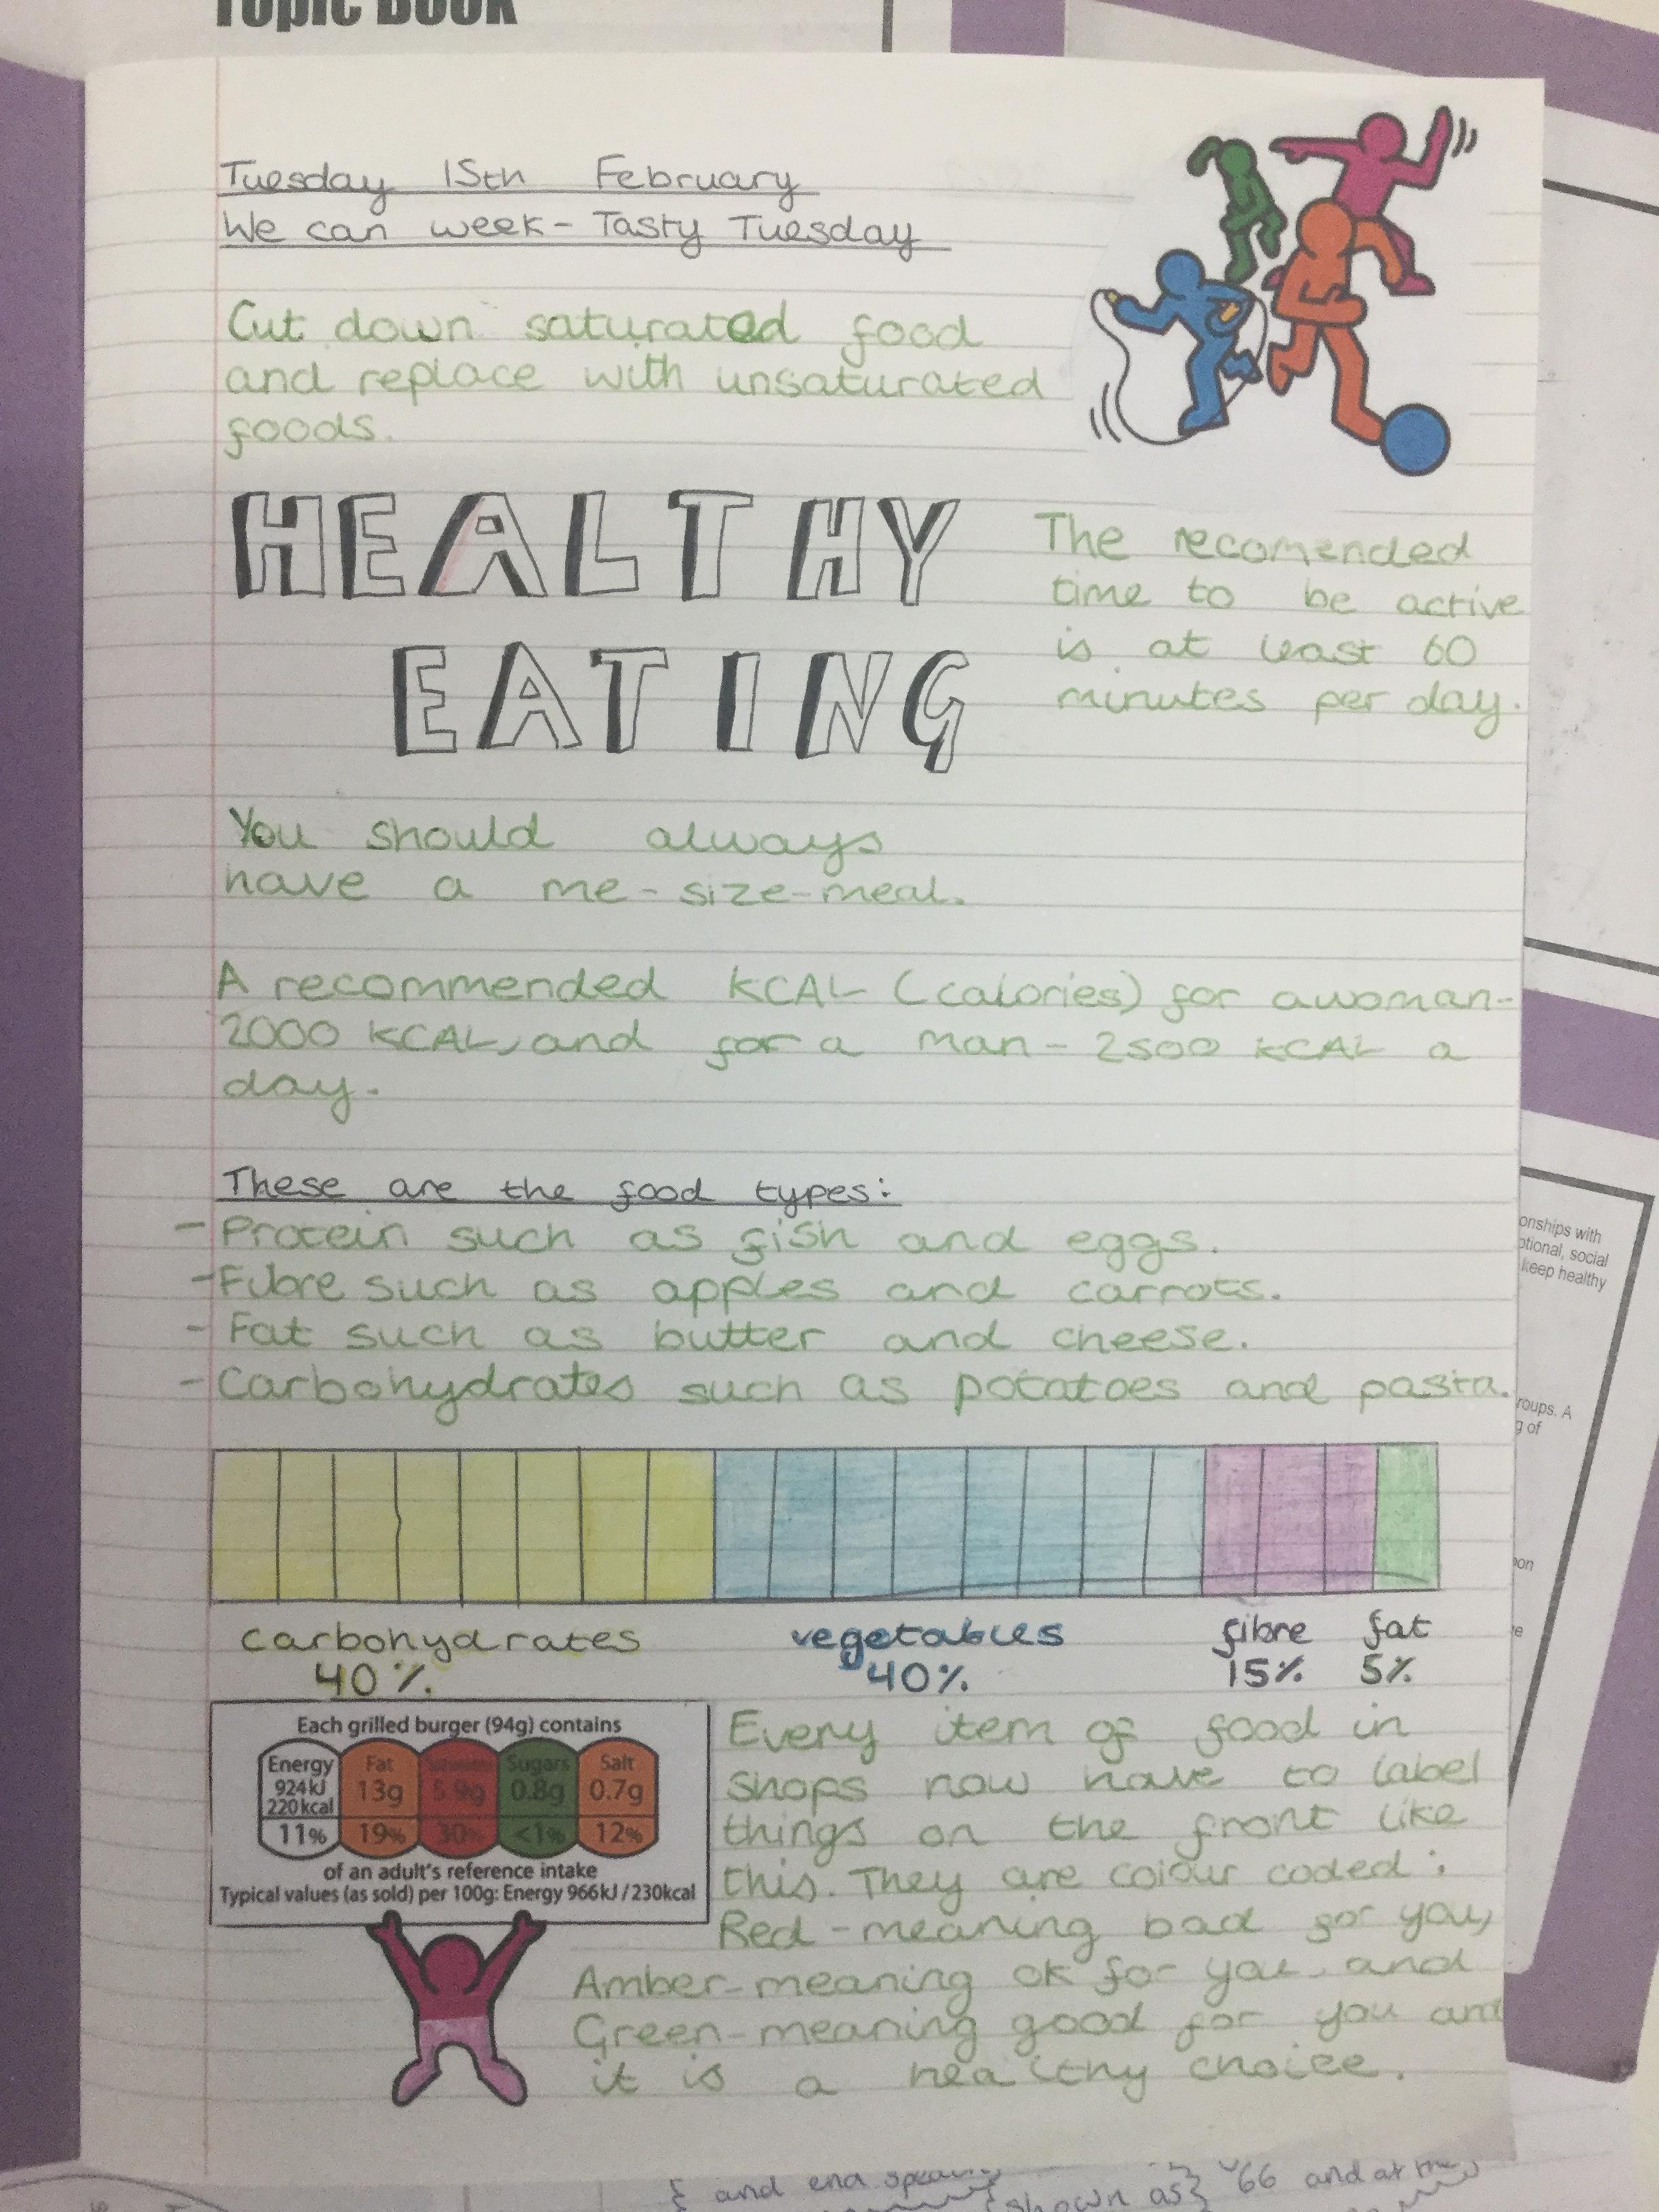 Topic Book
Tuesday 15th February
We can week - Tasty Tuesday
Cut down saturated food
and replace with unsaturated
foods.
HEALTHY
EATING
The recomended
time to be active
is at least 60
minutes per day.
You should always
have a me-size-meal.
A recommended KCAL (calories) for a woman-
2000 KCAL, and for a man - 2500 KCAL a
day.
These are the food types:
- Protein such as fish and eggs.
- Fibre such as apples and carrots.
- Fat such as butter and cheese.
- Carbohydrates such as potatoes and pasta.
carbohydrates
40%
vegetables
40%
fibre
15%
fat
5%
Each grilled burger (94g) contains
Energy
924kJ
220kcal
11%
Fat
13g
19%
5.9g
30%
Sugars
0.8g
<1%
Salt
0.7g
12%
of an adult's reference intake
Typical values (as sold) per 100g: Energy 966kJ / 230kcal
Every item of food in
shops now have to label
things on the front like
this. They are colour coded:
Red - meaning bad for you,
Amber - meaning ok for you and
Green - meaning good for you and
it is a healthy choice.
onships with
otional, social
keep healthy
roups. A
g of
and end
shown as} "66 and at the